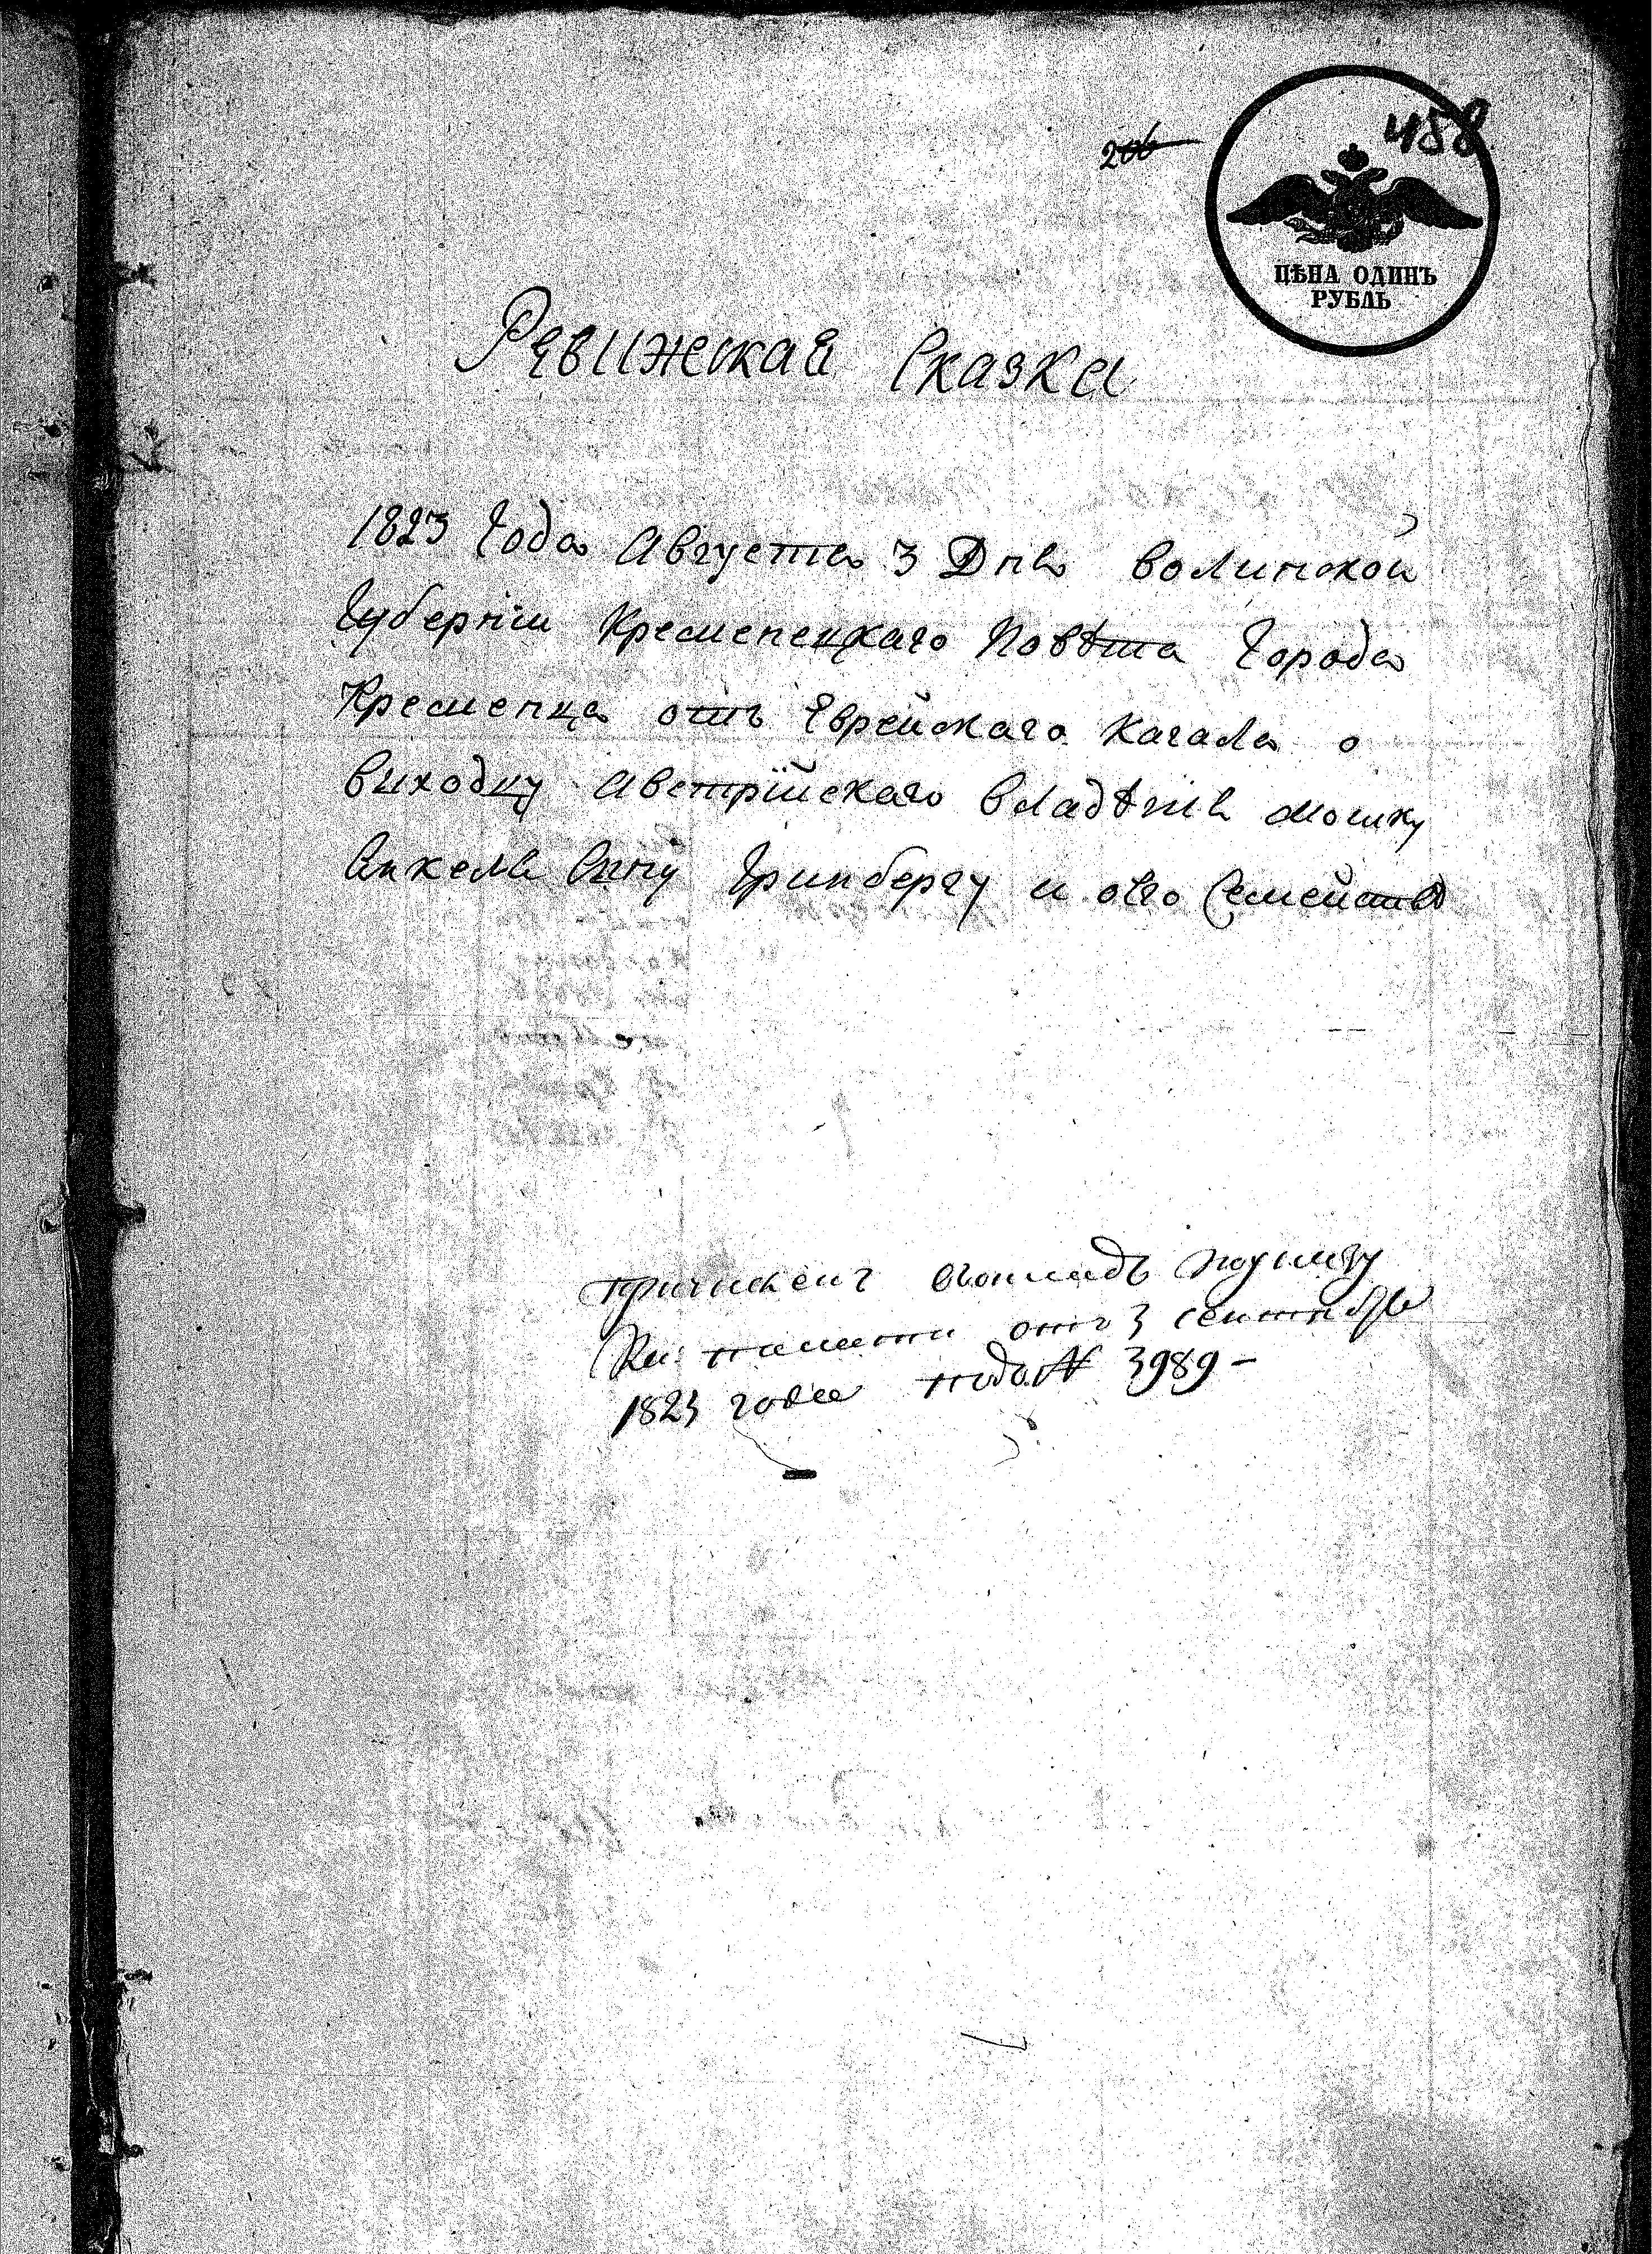 206
458
ЦѢНА ОДИНЪ
РУБЛЬ
Ревижская Сказка
1823 Года Августа 3 Дня Волинской
Губерніи Кременецкаго Повѣта Города
Кременца отъ Еврейскаго Кагала о
Выходцу Австрійскаго Владѣнія Мошку
Янкеля Сыну Гринбергу и его Семействѣ
от 3 сентября
1823 года подъ № 3989 –